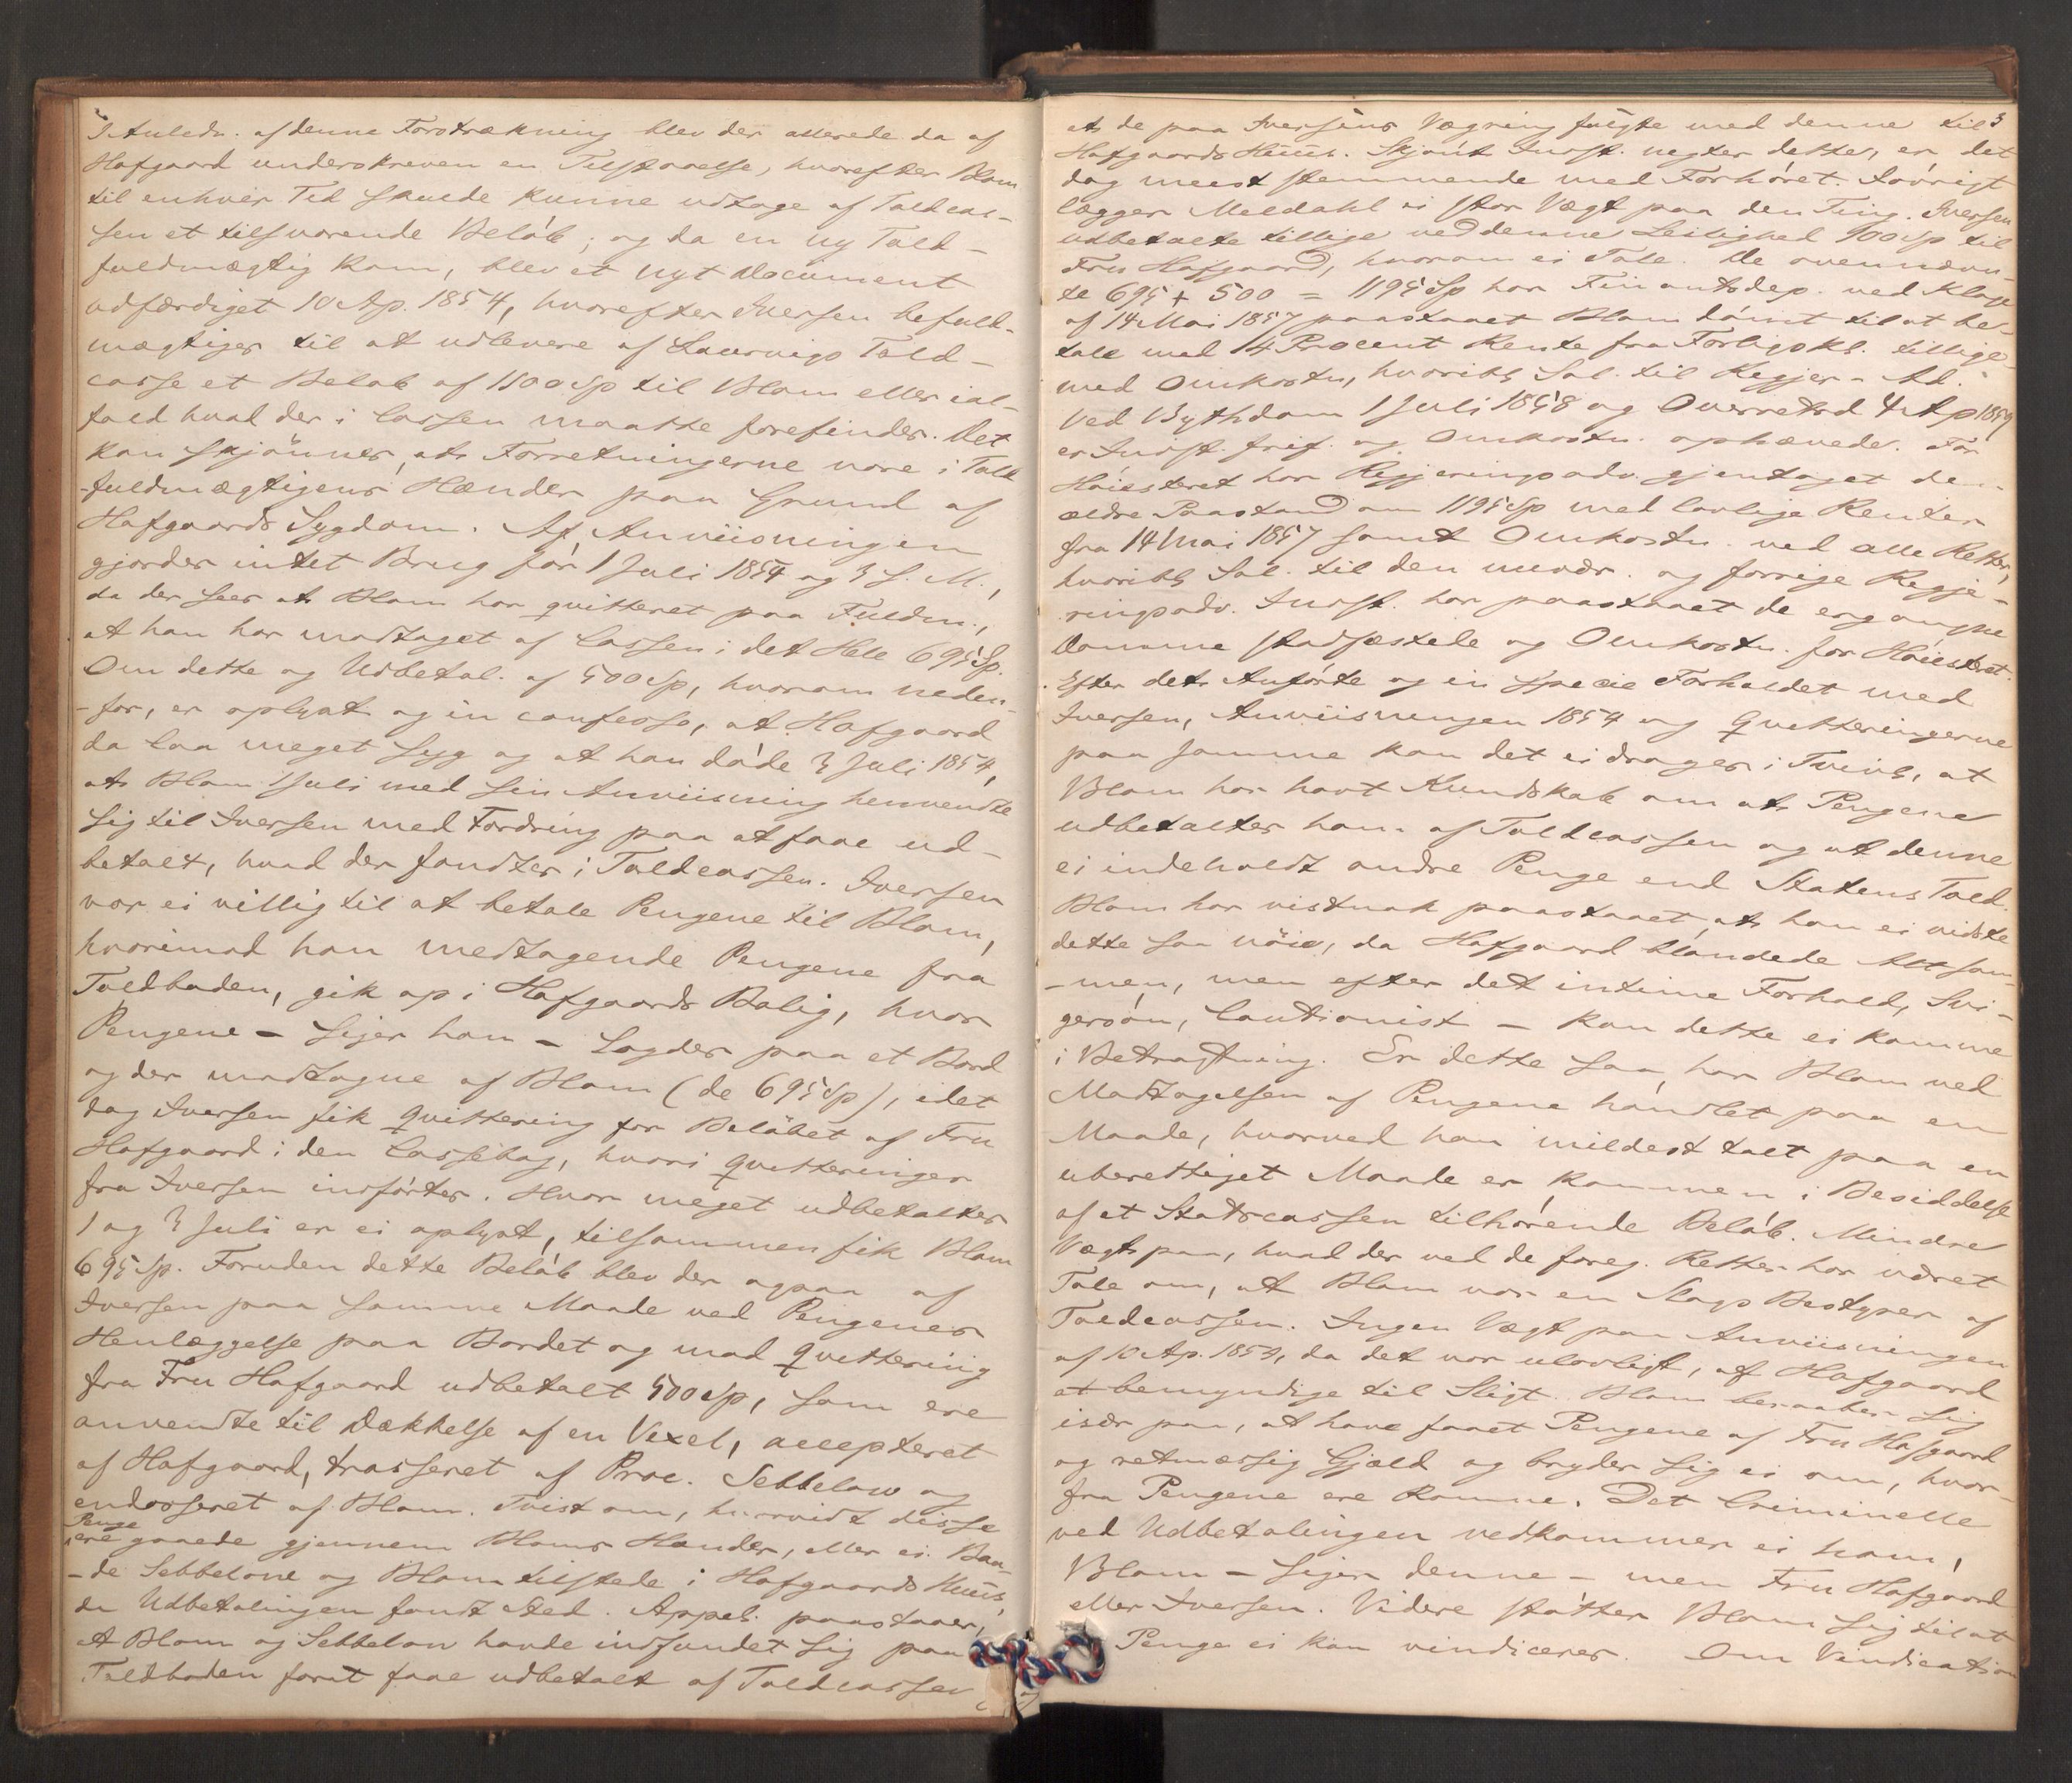 I Anledn. af denne Forstrækning blev der allerede da af
Hafgaard underskreven en Tilstaaelse, hvorefter Blom
til enhver Tid skulde kunne udtage af Toldcas-
sen et tilsvarende Beløb; og da en ny Told-
fuldmægtig kom, blev et nyt Document
udfærdiget 10 Ap. 1854, hvorefter Iversen befuld-
mægtiges til at udlevere af Laurvigs Told-
casse et Beløb af 1100 Sp til Blom eller ial-
fald hvad der i Cassen maatte forefindes. Det
kan skjønnes, at Forretningerne vare i Told
fuldmægtigens Hænder paa Grund af
Hafgaards Sygdom. Af Anviisningen
gjordes intet Brug før 1 Juli 1854 og 3 s. M.,
da der sees at Blom har qvitteret paa Fuldm.,
at han har modtaget af Cassen i det Hele 695 Sp.
Om dette og Udbetal. af 500 Sp, hvorom neden-
-for, er oplyst og in confesso, at Hafgaard
da laa meget syg og at han døde 3 Juli 1854,
at Blom 1 Juli med sin Anviisning henvendte
sig til Iversen med Fordring paa at faae ud-
betalt, hvad der fandtes i Toldcassen. Iversen
var ei villig til at betale Pengene til Blom,
hvorimod han medtagende Pengene fra
Toldboden, gik op i Hafgaards Bolig, hvor
Pengene – siger han – lagdes paa et Bord
og der modtagne af Blom (de 695 Sp), idet
dog Iversen fik Qvittering for Beløbet af Fru
Hafgaard i den Cassebog, hvori Qvitteringer
fra Iversen indførtes. Hvor meget udbetaltes
1 og 3 Juli er ei oplyst, tilsammen fik Blom
695 Sp. Foruden dette Beløb blev der ogsaa af
Iversen paa samme Maade ved Pengenes
Henlæggelse paa Bordet og mod Qvittering
fra Fru Hafgaard udbetalt 500 Sp, som ere
anvendte til Dækkelse af en Vexel, accepteret
af Hafgaard, trasseret af Proc. Sebbelow og
endosseret af Blom. Tvist om, hvorvidt disse
Penge
ere gaaede gjennem Bloms Hænder, eller ei. Baa-
-de Sebbelow og Blom tilstede i Hafgaards Huus,
da Udbetalingen fandt Sted. Appel. paastaaer,
at Blom og Sebbelow havde indfundet sig paa
Toldboden forat faae udbetalt af Toldcassen
at de paa Iversens Vægring fulgte med denne til 3
Hafgaards Huus. Skjønt Indst. negter dette, er det
dog meest stemmende med Forhøret. Iøvrigt
lægger Meldahl ei stor Vægt paa den Ting. Iversen
udbetalte tillige ved denne Leilighed 100 Sp til
Fru Hafgaard, hvorom ei Tale. De ovennævn-
te 695 + 500 = 1195 Sp har Finantsdep. ved Klage
af 14 Mai 1857 paastaaet Blom dømt til at be-
tale med 4 Procent Rente fra Forligskl. tillige-
med Omkostn., hvoribl. Sal. til Regjer.-Ad.
Ved Bythdom 1 Juli 1858 og Overretsd 4 Ap 1859
er Indst. frif. og Omkostn. ophævede. For
Høiesteret har Regjeringsadv. gjentaget den
ældre Paastand om 1195 Sp med lovlige Renter
fra 14 Mai 1857 samt Omkostn. ved alle Retter,
hvoribl. Sal. til den nuvær. og forrige Regje-
ringsadv. Indst. har paastaaet de ergangne
Domme stadfæstede og Omkostn. for Høiesteret.
Efter det Anførte og in specie Forholdet med
Iversen, Anviisningen 1854 og Qvitteringerne
paa samme kan det ei drages i Tvivl, at
Blom har havt Kundskab om at Pengene
udbetaltes ham af Toldcassen og at denne
ei indeholdt andre Penge end Statens Told.
Blom har vistnok paastaaet, at han ei vidste
dette saa nøie, da Hafgaard blandede Alt sam-
-men, men efter det intime Forhold, Svi-
gersøn, Cautionist – kan dette ei komme
i Betragtning. Er dette saa, har Blom ved
Modtagelsen af Pengene handlet paa en
Maade, hvorved han mildest talt paa en
uberettiget Maade er kommen i Besiddelse
af et Statscassen tilhørende Beløb. Mindre
Vægt paa, hvad der ved de foreg. Retter har været
Tale om, at Blom var en Slags Bestyrer af
Toldcassen. Ingen Vægt paa Anviisningen
af 10 Ap. 1854, da det var ulovligt, af Hafgaard
at bemyndige til Sligt. Blom beraaber sig
især paa, at have faaet Pengene af Fru Hafgaard
og retmæssig Gjæld og bryder sig ei om, hvor-
fra Pengene ere komne. Det Criminelle
ved Udbetalingen vedkommer ei ham,
Blom – siger denne – men Fru Hafgaard
eller Iversen. Videre støtter Blom sig til at
Penge ei kan vindiceres. Om Vindication